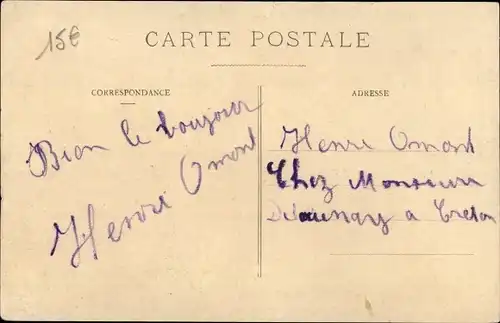 15€
CARTE POSTALE
CORRESPONDANCE
ADRESSE
Bien le bonjour
Henri Omont
Henri Omont
Chez Monsieur
Delaunay a Creton